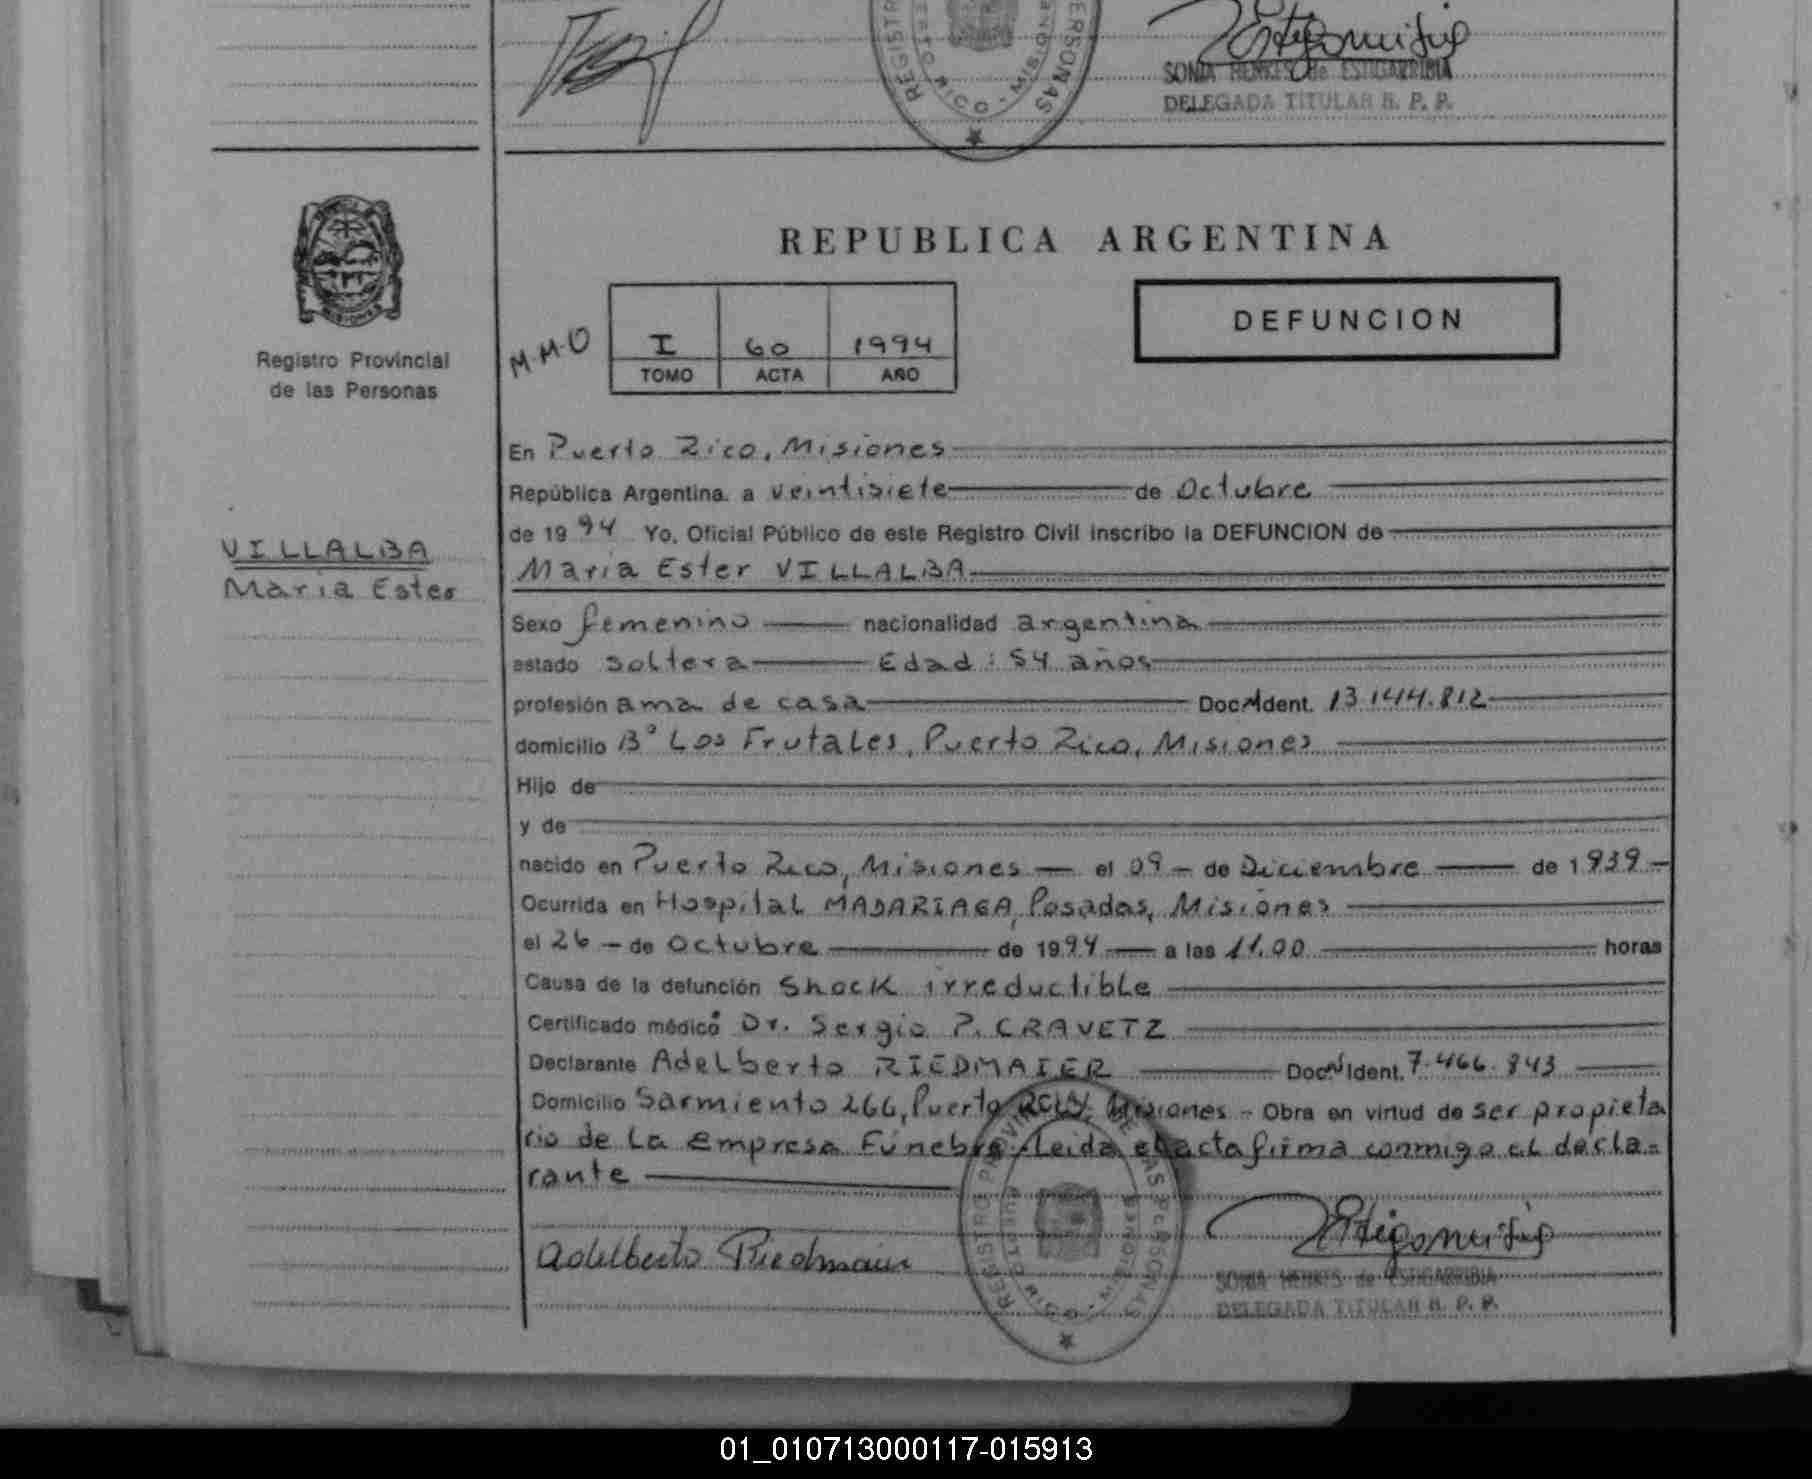 SONIA HENKES de ESTIGARRIBIA
DELEGADA TITULAR R. P. P.
REPUBLICA ARGENTINA
MISIONES
Registro Provincial
de las Personas
M.M.O
I 60 1994
TOMO ACTA AÑO
DEFUNCION
VILLALBA
Maria Ester
En Puerto Rico, Misiones
República Argentina. a veintisiete de Octubre
de 1994 Yo, Oficial Público de este Registro Civil inscribo la DEFUNCION de
Maria Ester VILLALBA
Sexo femenino nacionalidad argentina
estado soltera Edad: 54 años
profesión ama de casa Doc. Ident. 13.144.812
domicilio B° Los Frutales, Puerto Rico, Misiones
Hijo de
y de
nacido en Puerto Rico, Misiones — el 09 — de Diciembre de 1939 —
Ocurrida en Hospital MADARIAGA, Posadas, Misiones
el 26 — de Octubre de 1994 — a las 11.00 horas
Causa de la defunción Shock irreductible
Certificado médico Dr. Sergio P. CRAVETZ
Declarante Adelberto RIEDMAIER Doc. Ident. 7.466.843
Domicilio Sarmiento 266, Puerto Rico, Misiones - Obra en virtud de ser propieta
rio de la Empresa Fúnebre. Leida el acta firma conmigo el decla-
rante
REGISTRO PROVINCIAL DE LAS PERSONAS
PUERTO RICO - MISIONES
Adelberto Riedmaier
SONIA HENKES de ESTIGARRIBIA
DELEGADA TITULAR R. P. P.
01_010713000117-015913